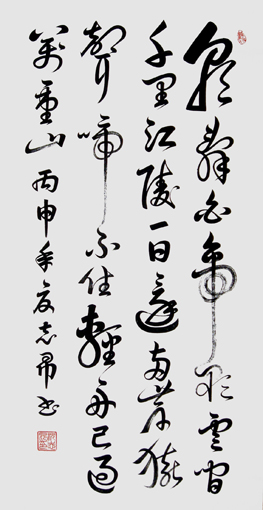 朝辭白帝彩雲間
千里江陵一日還兩岸猿
聲啼不住輕舟已過
萬重山丙申年志书